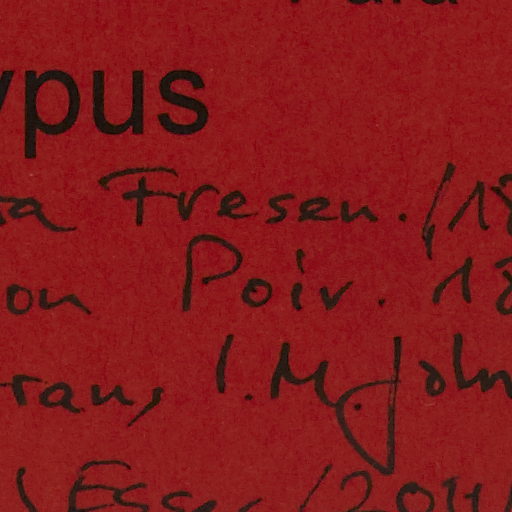 ypus
ta Fresen. (18
on Poiv. 18
ran, I.M. John
Esser (2011